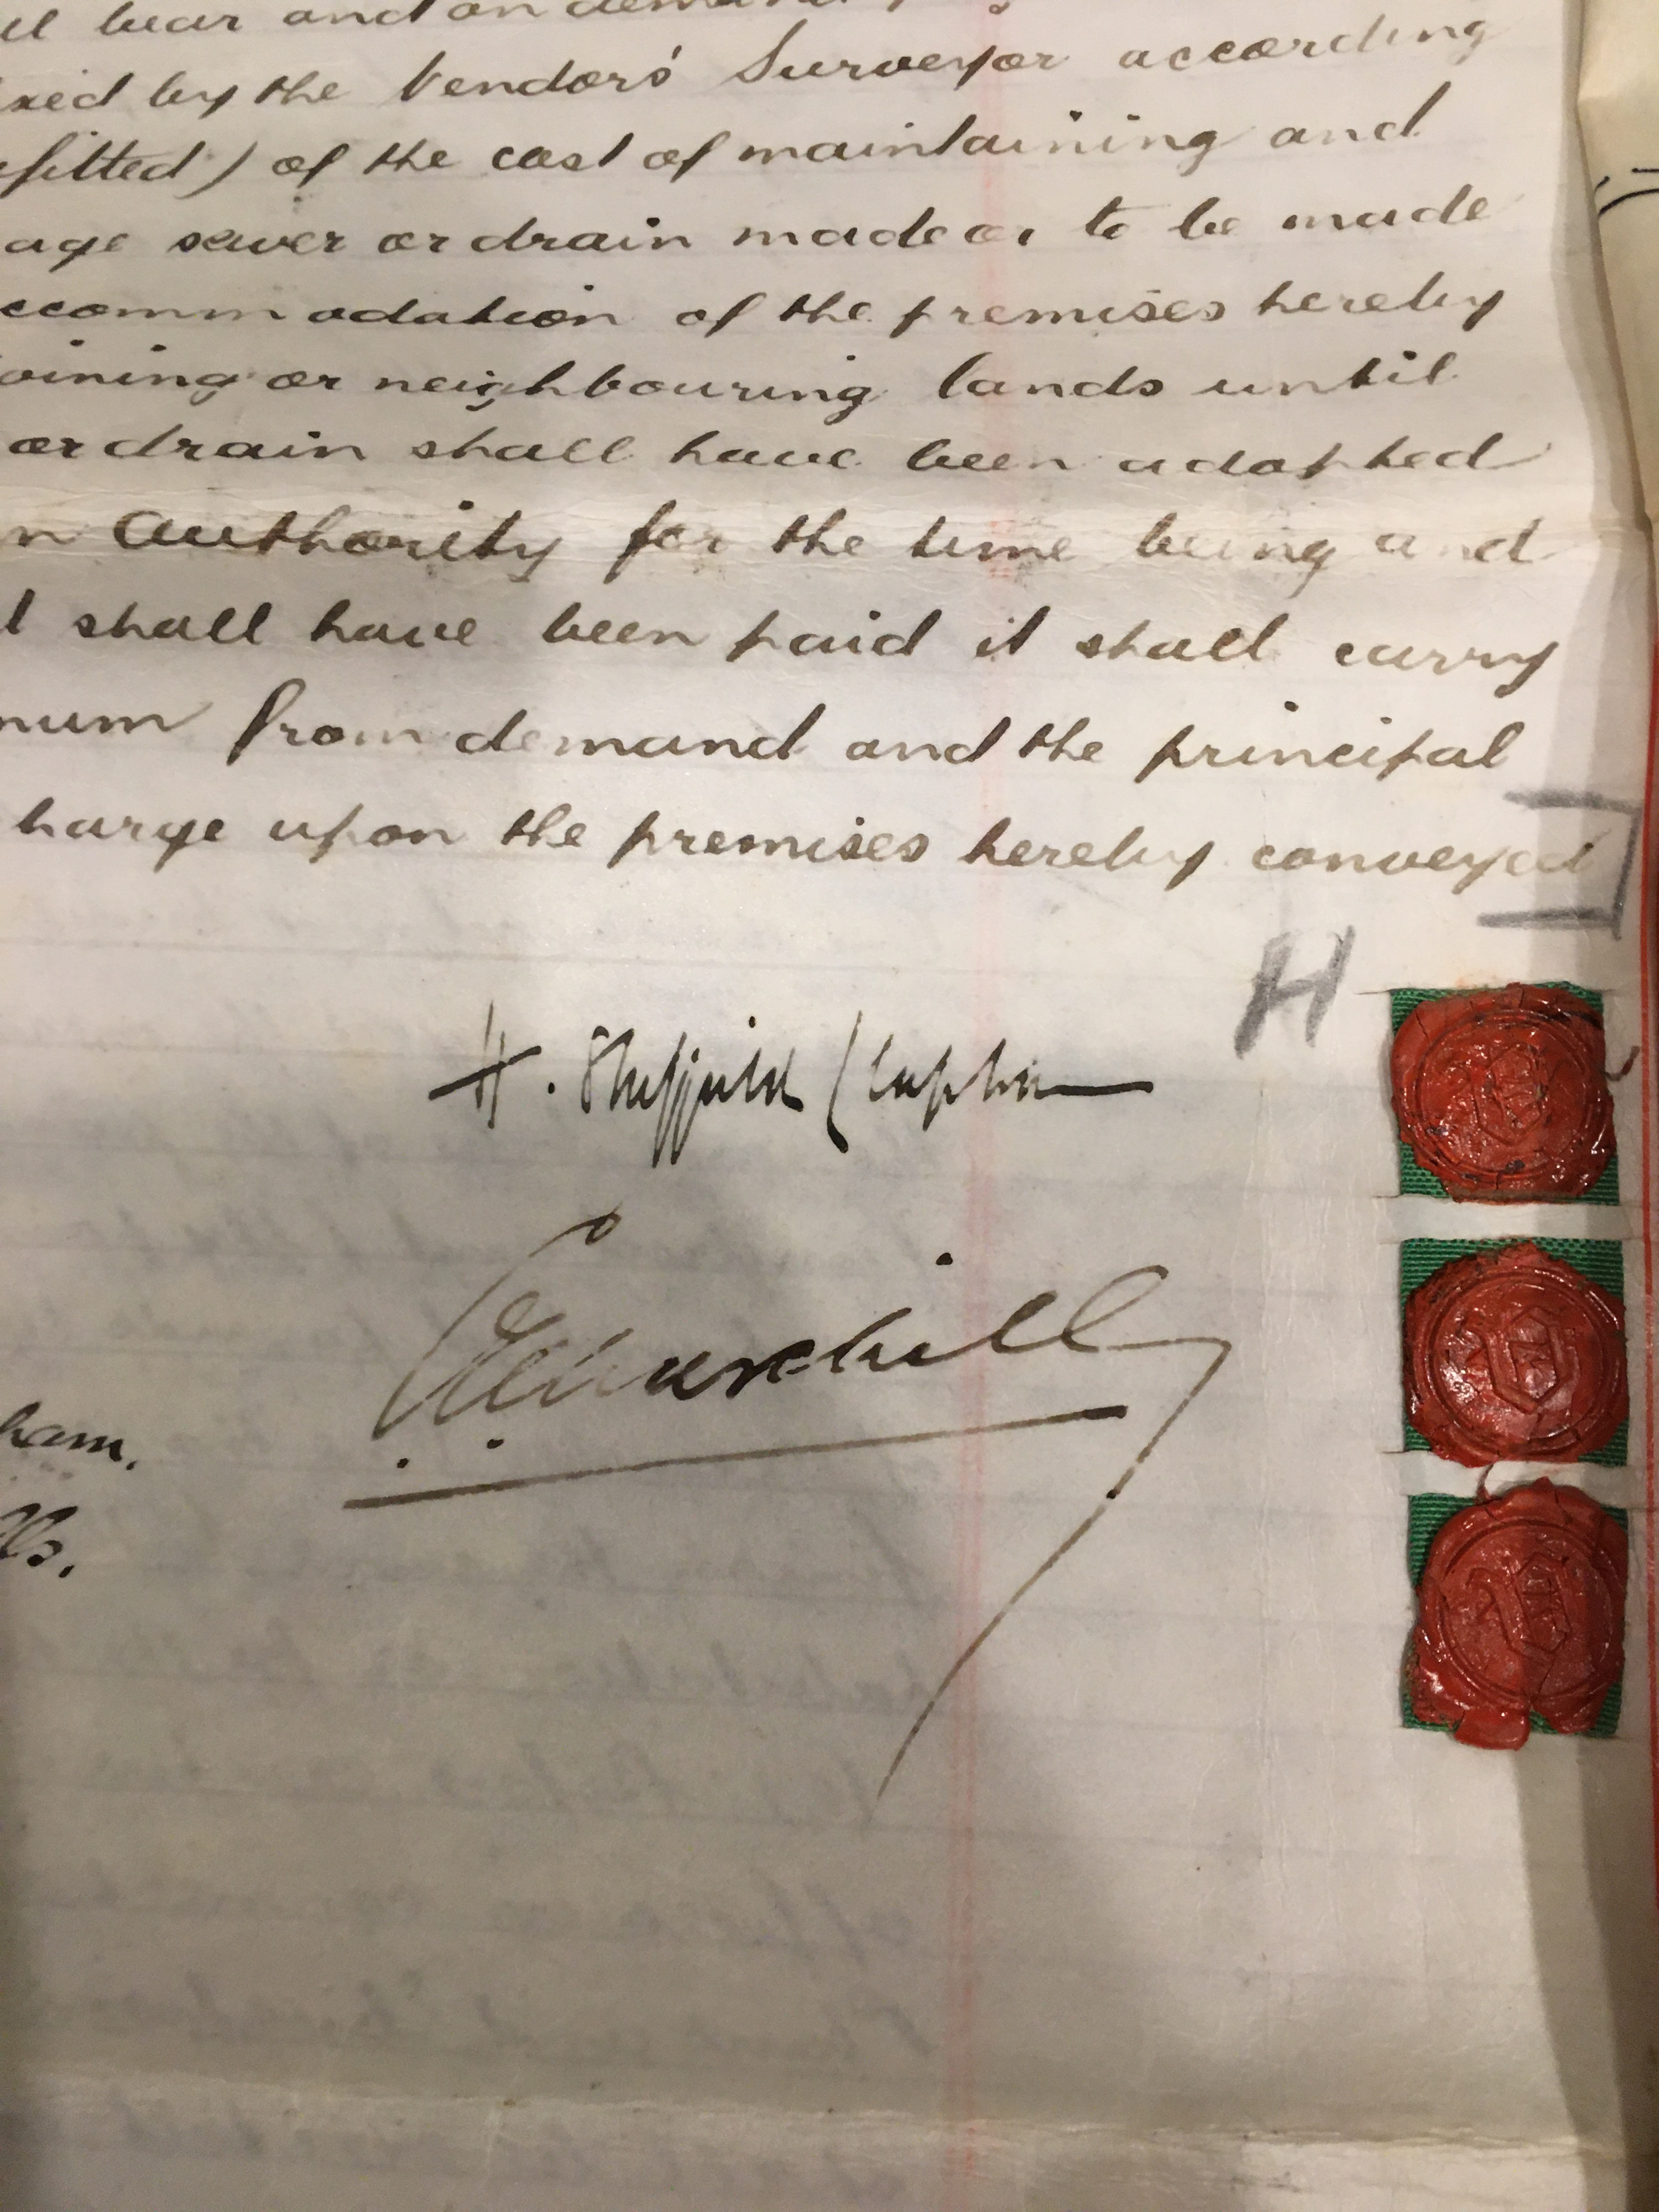 bear and on demand
by the Vendors Surveyor according
) of the cost of maintaining and
age sewer or drain made or to be made
ccommodation of the premises hereby
oining or neighbouring lands until
or drain shall have been adopted
n Authority for the time being and
l shall have been paid it shall carry
num from demand and the principal
harge upon the premises hereby conveyed
H
H. Sheffield Clapham
ham.